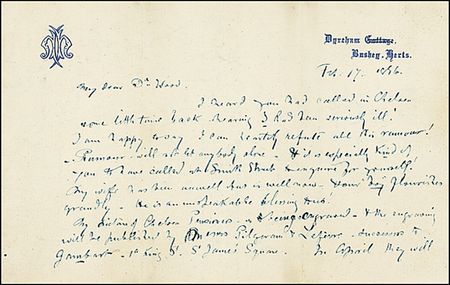 Dyreham Cottage,
Bushey, Herts.
Feb. 17. 1876.
My dear Dr Wood.
I heard you had called in Chelsea
some little time back hearing I had been seriously ill!
I am happy to say I can heartily refute all this rumour!
- Rumour will not let anybody alone - It is especially kind of
you to have called in Smith Street to enquire for yourself!
My wife has been unwell but is well now - Your boy flourishes
grandly - he is an unspeakable blessing to us.
My picture of Chelsea Pensioners is being engraved - & the engraving
will be published by Messrs Pilgeram & Lefevre - successors to
Gambart - 1a King St. St James's Square. In April they will